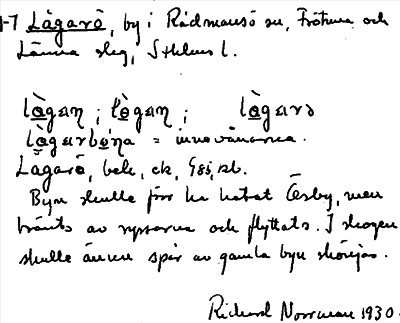 Lågarö, by i Rådmansö sn, Frötuna och
Länna skg, Sthlms l.
lò̀gaꞃ ; lògaꞃ ; lògarö
lògarbona = innevånarna.
Lågarö, bek, ck, Gsj, kb.
Byn skulle förr ha hetat Česby, men
bränts av ryssarna och flyttats. I skogen
skulle ännu spår av gamla byn skönjas.
Richard Norrman 1930.